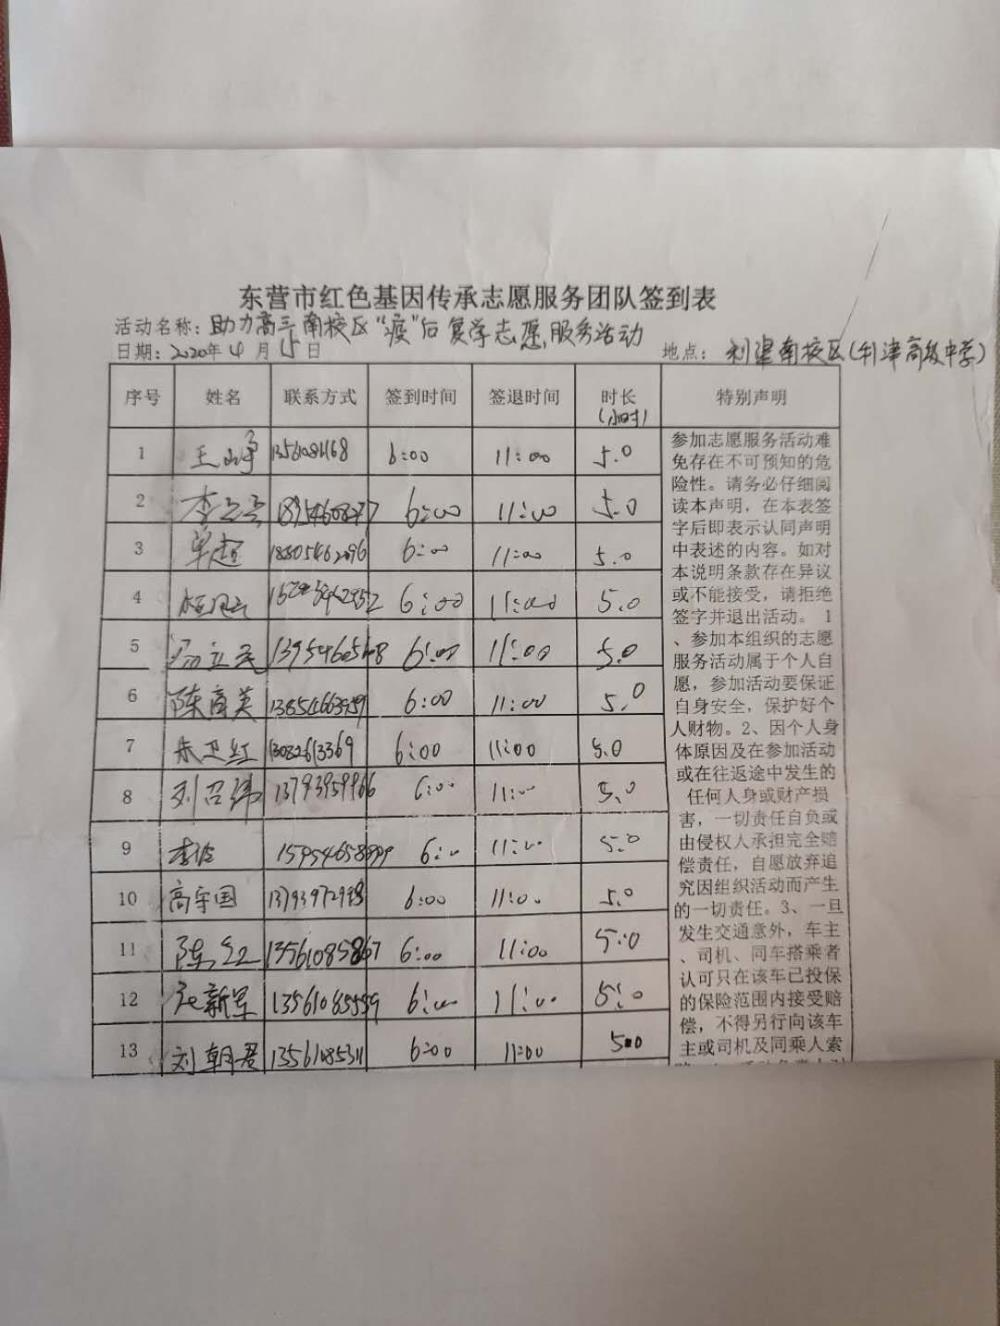 东营市红色基因传承志愿服务团队签到表
活动名称：助力高三南校区“疫”后复学志愿服务活动
日期：2020年4月15日 地点：利津南校区(利津高级中学)
序号 姓名 联系方式 签到时间 签退时间 时长(小时) 特别声明
1 6:00 11:00 5.0
2 18954608277 6:00 11:00 5.0
3 单超 18305462096 6:00 11:00 5.0
4 6:00 11:00 5.0
5 6:00 11:00 5.0
6 陈育英 6:00 11:00 5.0
7 朱卫红 13082613369 6:00 11:00 5.0
8 刘召伟 13793959966 6:00 11:00 5.0
9 李俊 6:00 11:00 5.0
10 高宇国 13793972998 6:00 11:00 5.0
11 陈红 13561085867 6:00 11:00 5.0
12 新军 13561085559 6:00 11:00 5.0
13 刘朝君 13561085311 6:00 11:00 5.0
参加志愿服务活动难
免存在不可预知的危
险性。请务必仔细阅
读本声明，在本表签
字后即表示认同声明
中表述的内容。如对
本说明条款存在异议
或不能接受，请拒绝
签字并退出活动。 1
、参加本组织的志愿
服务活动属于个人自
愿，参加活动要保证
自身安全，保护好个
人财物。2、因个人身
体原因及在参加活动
或在往返途中发生的
任何人身或财产损
害，一切责任自负或
由侵权人承担完全赔
偿责任，自愿放弃追
究因组织活动而产生
的一切责任。3、一旦
发生交通意外，车主
、司机、同车搭乘者
认可只在该车已投保
的保险范围内接受赔
偿，不得另行向该车
主或司机及同乘人索